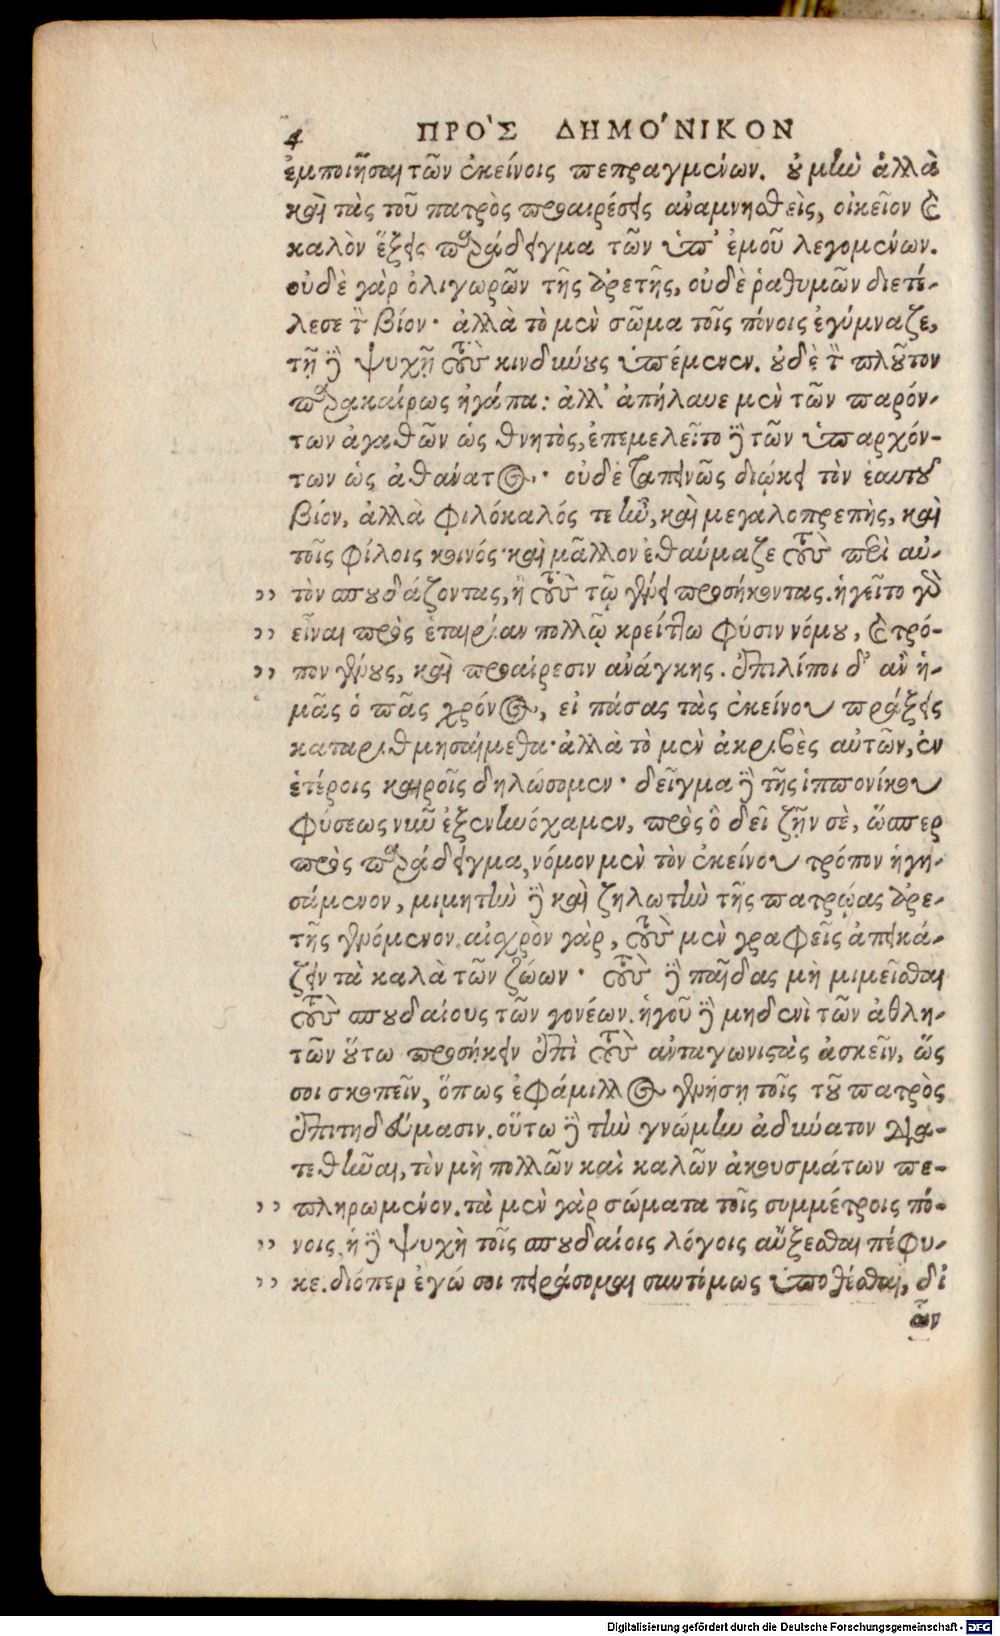 4 ΠΡΟ'Σ ΔΗΜΟ'ΝΙΚΟΝ
ἐμποιῆσαι τῶν ἐκείνοις πεπραγμένων. οὐ μὴν ἀλλὰ
καὶ τὰς τοῦ πατρὸς προαιρέσεις ἀναμνησθεὶς, οἰκεῖον καὶ
καλὸν ἕξεις παράδειγμα τῶν ὑπ' ἐμοῦ λεγομένων.
οὐδὲ γὰρ ὀλιγωρῶν τῆς ἀρετῆς, οὐδὲ ῥαθυμῶν διετέ-
λεσε τὸν βίον· ἀλλὰ τὸ μὲν σῶμα τοῖς πόνοις ἐγύμναζε,
τῇ δὲ ψυχῇ τοὺς κινδύνους ὑπέμενεν. οὐδὲ τὸν πλοῦτον
παρακαίρως ἠγάπα: ἀλλ' ἀπήλαυε μὲν τῶν παρόν-
των ἀγαθῶν ὡς θνητὸς, ἐπεμελεῖτο δὲ τῶν ὑπαρχόν-
των ὡς ἀθάνατος. οὐδὲ ταπεινῶς διῴκει τὸν ἑαυτοῦ
βίον, ἀλλὰ φιλόκαλός τε ἦν, καὶ μεγαλοπρεπὴς, καὶ
τοῖς φίλοις κοινός· καὶ μᾶλλον ἐθαύμαζε τοὺς περὶ αὐ-
,, τὸν σπουδάζοντας, ἢ τοὺς τῷ γένει προσήκοντας. ἡγεῖτο γὰρ
,, εἶναι πρὸς ἑταιρίαν πολλῷ κρείττω φύσιν νόμου, καὶ τρό-
,, πον γένους, καὶ προαίρεσιν ἀνάγκης. ἐπιλίποι δ' ἂν ἡ-
μᾶς ὁ πᾶς χρόνος, εἰ πάσας τὰς ἐκείνου πράξεις
καταριθμησαίμεθα· ἀλλὰ τὸ μὲν ἀκριβὲς αὐτῶν, ἐν
ἑτέροις καιροῖς δηλώσομεν· δεῖγμα δὲ τῆς ἱππονίκου
φύσεως νῦν ἐξενηνόχαμεν, πρὸς ὃ δεῖ ζῇν σὲ, ὥσπερ
πρὸς παράδειγμα, νόμον μὲν τὸν ἐκείνου τρόπον ἡγη-
σάμενον, μιμητὴν δὲ καὶ ζηλωτὴν τῆς πατρῴας ἀρε-
τῆς γενόμενον. αἰσχρὸν γὰρ, τοὺς μὲν γραφεῖς ἀπεικά-
ζειν τὰ καλὰ τῶν ζώων· τοὺς δὲ παῖδας μὴ μιμεῖσθαι
τοὺς σπουδαίους τῶν γονέων. ἡγοῦ δὲ μηδενὶ τῶν ἀθλη-
τῶν οὕτω προσήκειν ἐπὶ τοὺς ἀνταγωνιστὰς ἀσκεῖν, ὥς
σοι σκοπεῖν, ὅπως ἐφάμιλλος γενήσῃ τοῖς τοῦ πατρὸς
ἐπιτηδεύμασιν. οὕτω δὲ τὴν γνώμην ἀδύνατον διατα-
τεθῆναι, τὸν μὴ πολλῶν καὶ καλῶν ἀκουσμάτων πε-
,, πληρωμένον. τὰ μὲν γὰρ σώματα τοῖς συμμέτροις πό-
,, νοις, ἡ δὲ ψυχὴ τοῖς σπουδαίοις λόγοις αὔξεσθαι πέφυ-
,, κε. διόπερ ἐγώ σοι πειράσομαι συντόμως ὑποθέσθαι, δι
ὧν
Digitalisierung gefördert durch die Deutsche Forschungsgemeinschaft - DFG